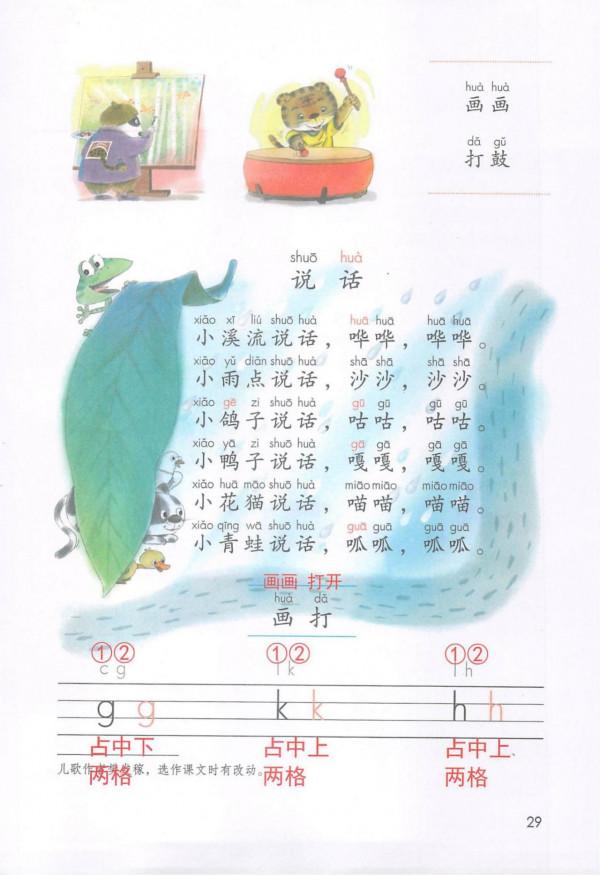 huà huà
画画
dǎ gǔ
打鼓
shuō huà
说话
xiǎo xī liú shuō huà huā huā huā huā
小溪流说话，哗哗，哗哗。
xiǎo yǔ diǎn shuō huà shā shā shā shā
小雨点说话，沙沙，沙沙。
xiǎo gē zi shuō huà gū gū gū gū
小鸽子说话，咕咕，咕咕。
xiǎo yā zi shuō huà gā gā gā gā
小鸭子说话，嘎嘎，嘎嘎。
xiǎo huā māo shuō huà miāo miāo miāo miāo
小花猫说话，喵喵，喵喵。
xiǎo qīng wā shuō huà guā guā guā guā
小青蛙说话，呱呱，呱呱。
画画 打开
huà dǎ
画打
①② ①② ①②
c g l k l h
g g k k h h
占中下 占中上 占中上、
两格 两格 两格
儿歌作，选作课文时有改动。
29